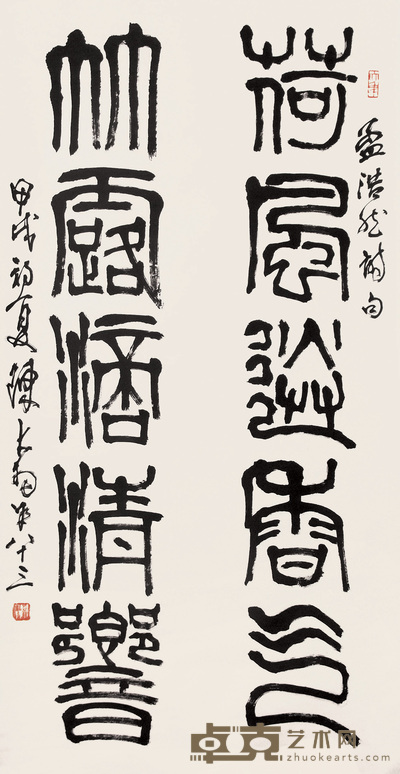 孟浩然詩句
荷風送香气
竹露滴清響
甲戌初夏陳大羽年八十三
卓克艺术网
zhuokearts.com